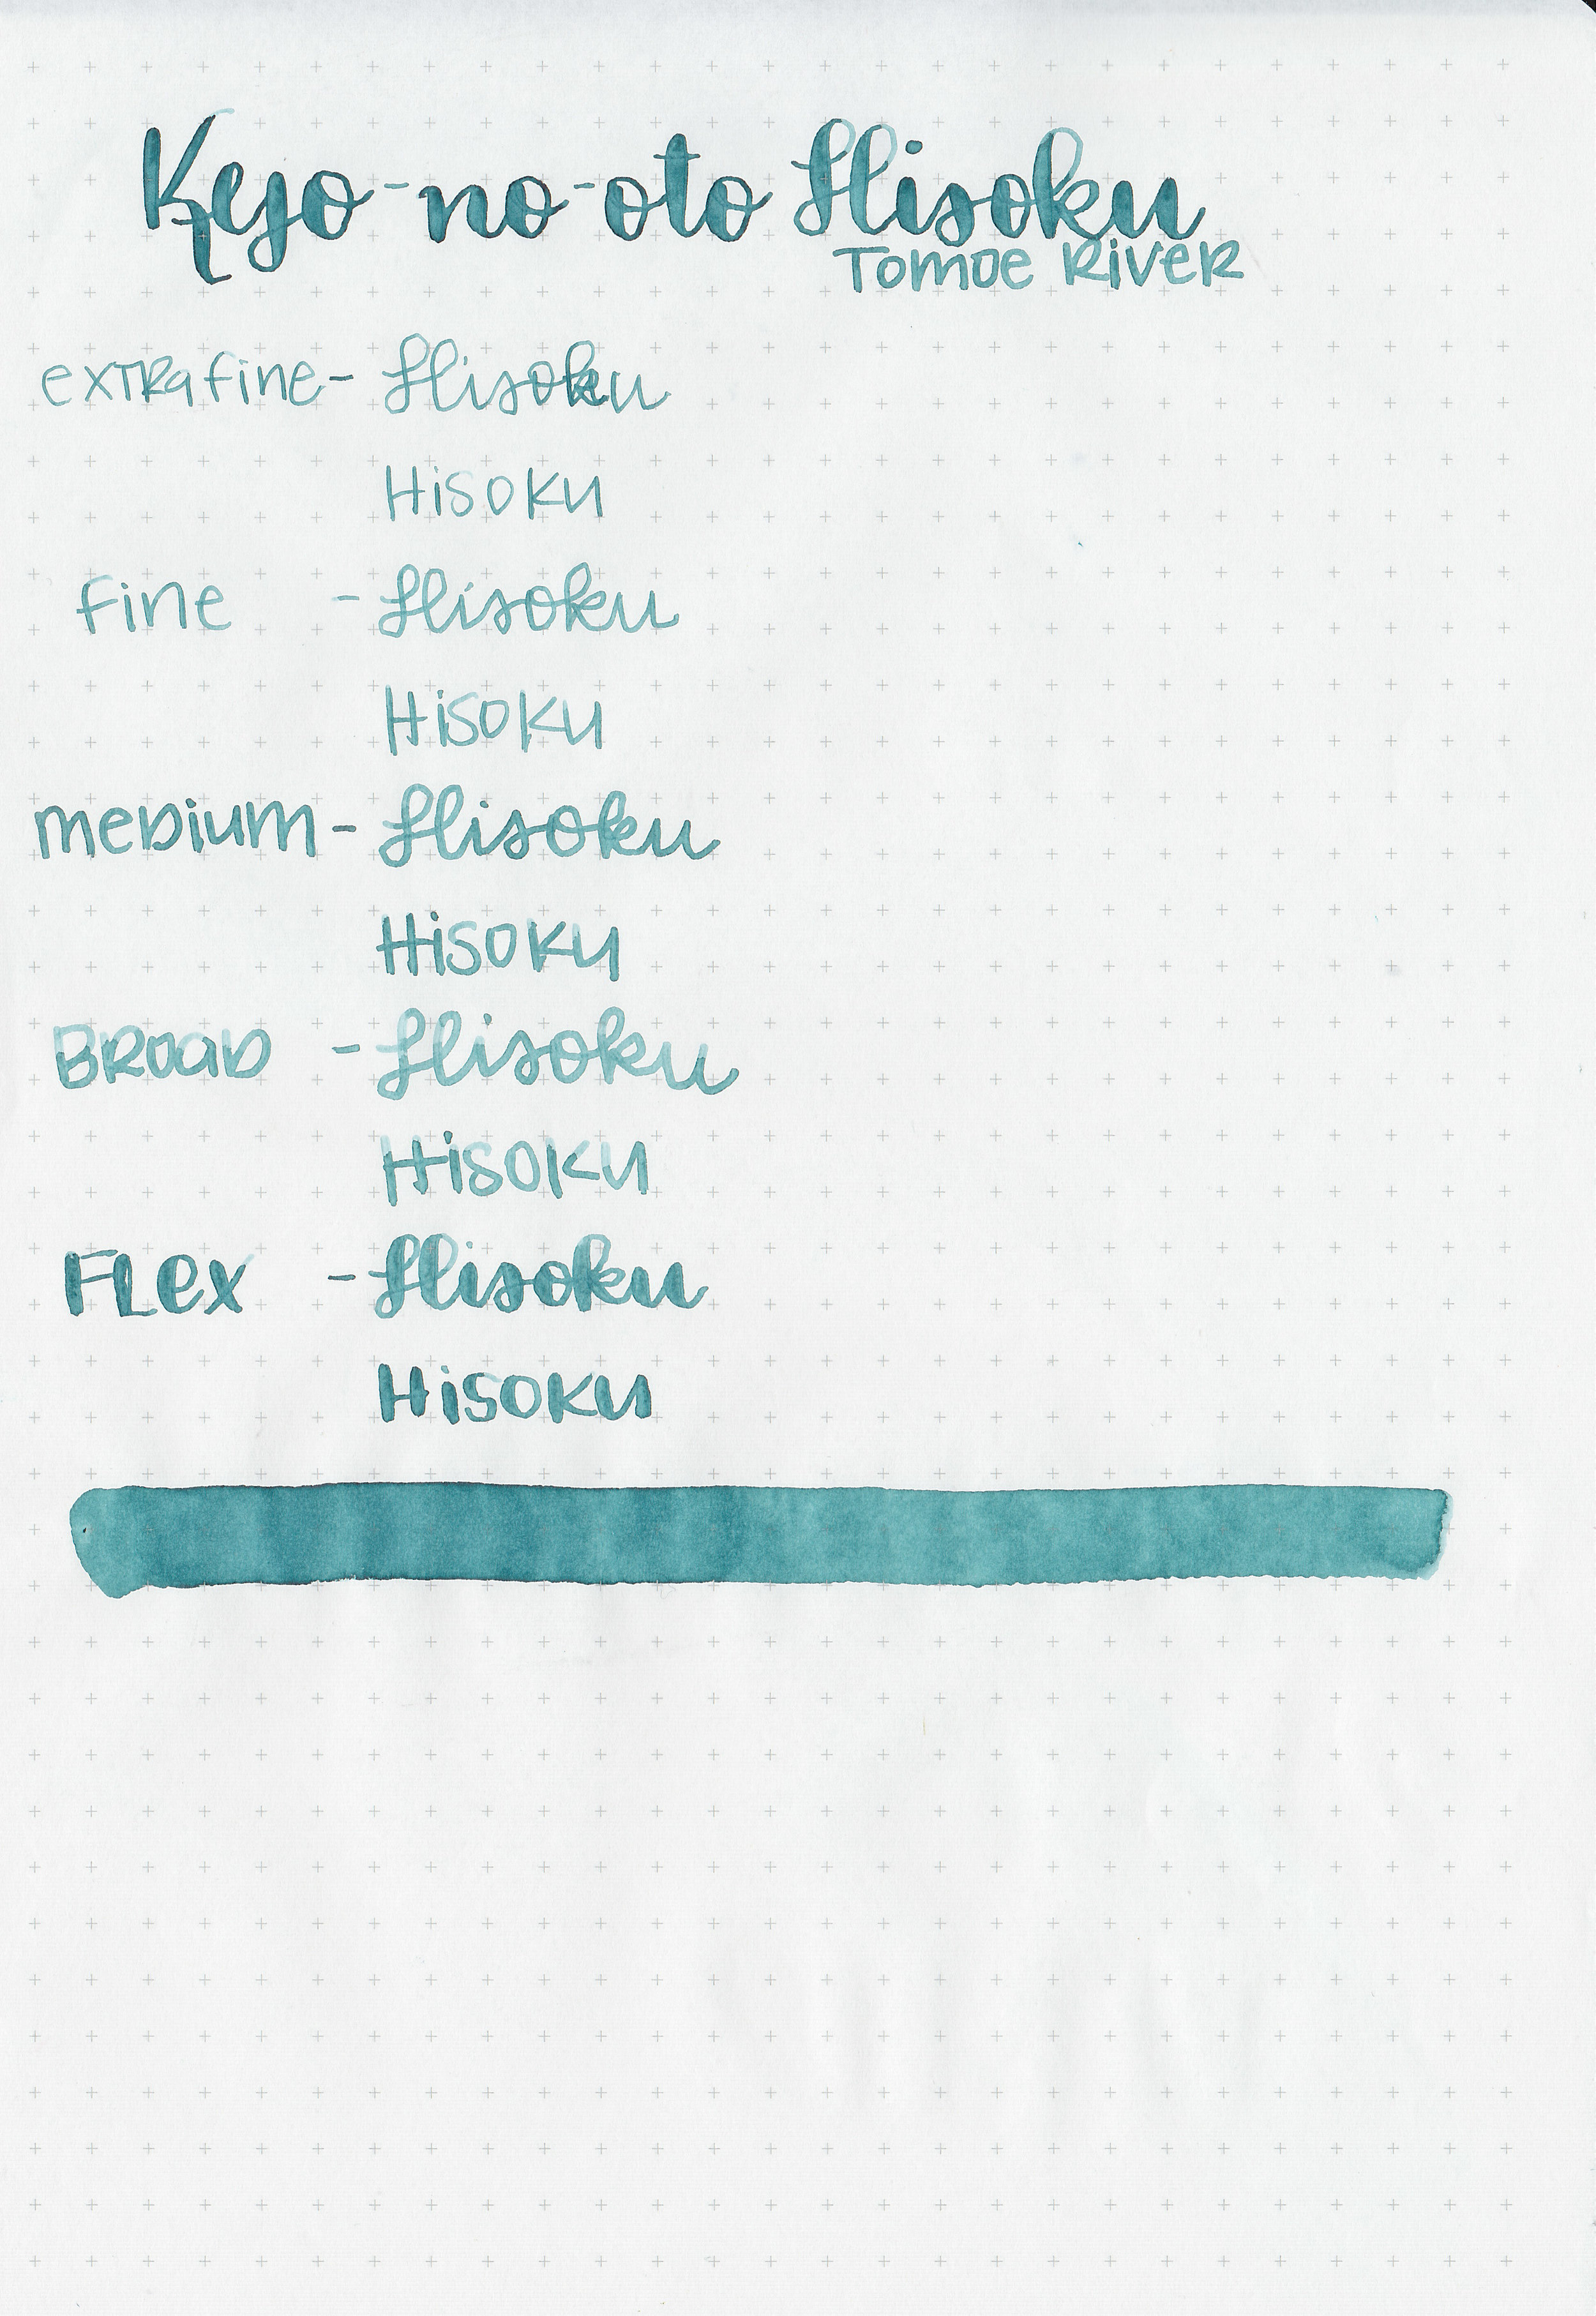 Keyo-no-oto Hisoku
Tomoe RiveR
exTRa fine - Hisoku
HisoKu
fine - Hisoku
HisoKu
meDium - Hisoku
HisoKu
BRoaD - Hisoku
HisoKu
FLex - Hisoku
HisoKu